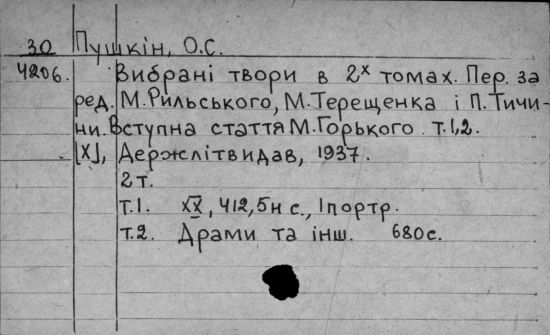 30 Пушкін, О.С.
4206. Вибрані твори в 2х томах. Пер. за
ред. М.Рильського, М.Терещенка і П.Тичи-
ни. Вступна стаття М.Горького. т.1,2.
[Х], Держлітвидав, 1937.
2 т.
т.1. XX, 412, 5н с., 1 портр.
т.2. Драми та інш. 680с.